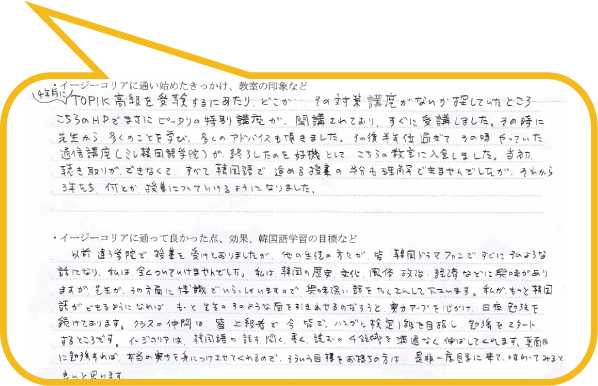 ・イージーコリアに通い始めたきっかけ、教室の印象など
(4年前に) TOPIK高級を受験するにあたり、どこか… その対策講座がないか探していたところ
こちらのHPでまさにピッタリの特別講座が、開講されており、すぐに受講しました。その時に
先生から、多くのことを学び、多くのアドバイスも頂きました。その後半年位過ぎて、その時やっていた
通信講座(ミレ韓国語学院)が、終了したのを好機として、こちらの教室に入会しました。当初、
聴き取りができなくて、すべて韓国語で進める授業の半分も理解できませんでしたが、それから
3年たち、何とか授業についていけるようになりました。
・イージーコリアに通って良かった点、効果、韓国語学習の目標など
以前違う学院で授業を受けておりましたが、他の生徒の方々が、皆韓国ドラマファンですぐにそのような
話になり、私は、全くついていけませんでした。私は韓国の歴史、文化、風俗、政治、経済などに興味があり
ますが、先生が、その方面に博識でいらっしゃいますので興味深い話をたくさんして下さいます。私が、もっと韓国
語ができるようになれば、もっと先生のそのような面を引き出せるのだろうと、実力アップを心がけ、日夜勉強を
続けております。クラスの仲間は、皆上級者で今皆で、ハングル検定1級を目指し、勉強をスタート
するところです。イージーコリアは、韓国語の話す、聞く、書く、読むの全領域を満遍なく伸ばしてくれます。真面目
に勉強すれば、本当の実力を身につけさせてくれるので、そういう目標をお持ちの方は、是非一度見学に来て、味わってみると
良いと思います。